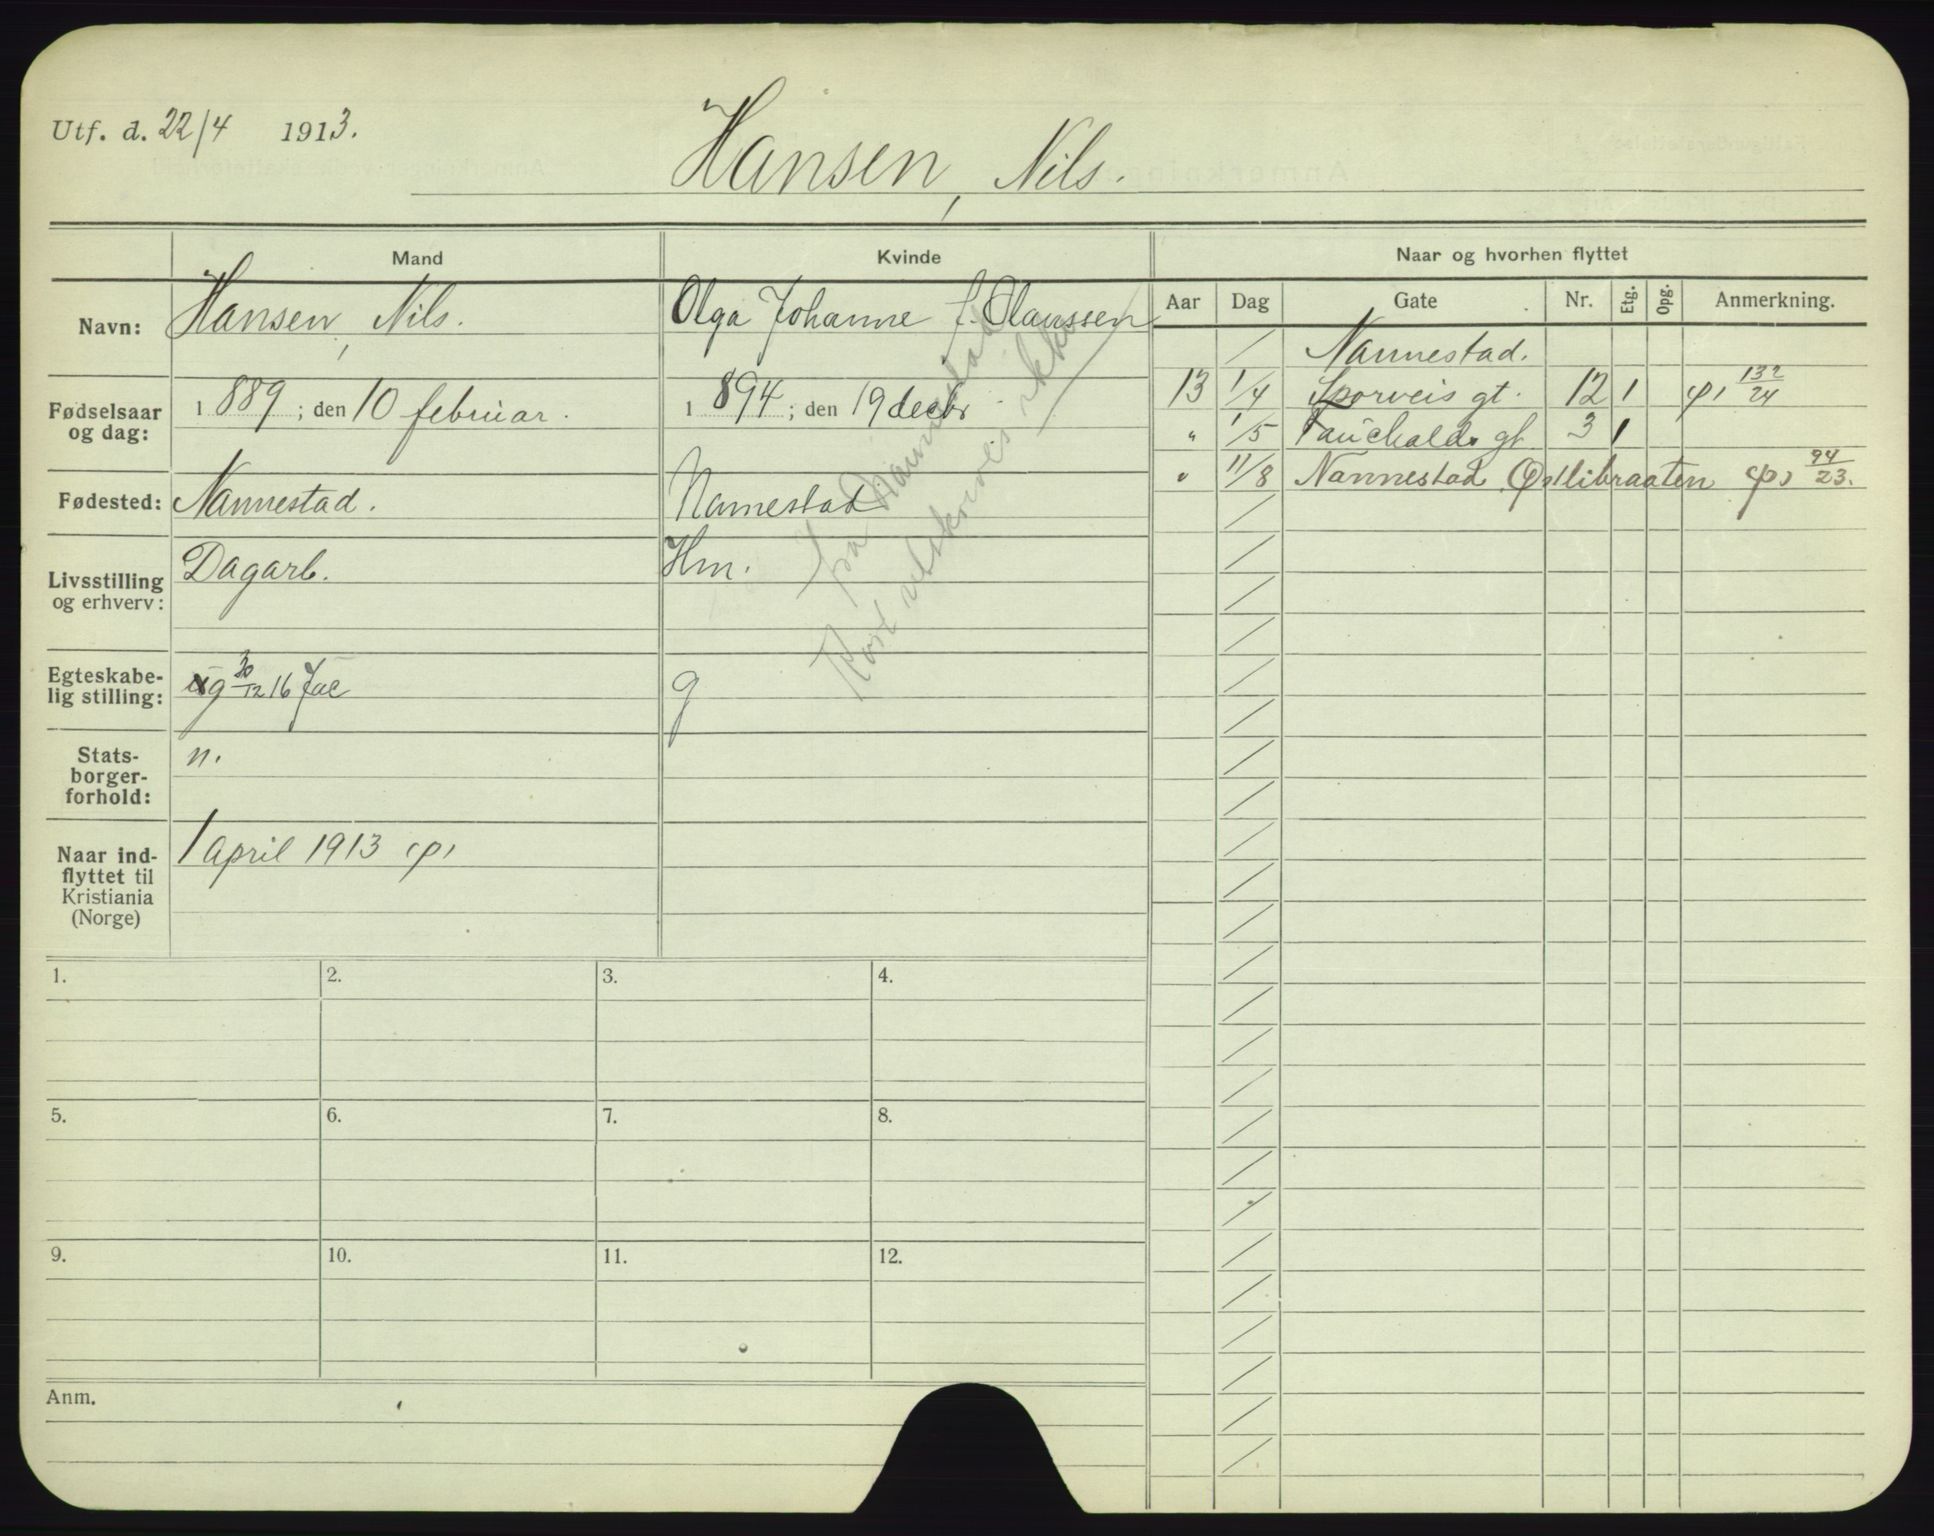 Utf. d. 22/4 1913.
Hansen, Nils.
Mand
Kvinde
Naar og hvorhen flyttet
Navn:
Hansen, Nils.
Olga Johanne f. Olaussen
Fødselsaar og dag:
1889; den 10 februar.
1894; den 19 decbr
Fødested:
Nannestad.
Nannestad
Livsstilling og erhverv:
Dagarb.
Hm.
Egteskabelig stilling:
g 30/12 16
g
Statsborgerforhold:
n.
Naar indflyttet til Kristiania (Norge)
1 april 1913
fra Nannestad
Kort utskrevet ikke
Aar Dag Gate Nr. Etg. Opg. Anmerkning.
/ Nannestad.
13 1/4 Sporveis gt. 12 1 132/24
" 1/5 Fauchalds gt 3 1
" 11/8 Nannestad Østlibraaten 94/23.
1. 2. 3. 4.
5. 6. 7. 8.
9. 10. 11. 12.
Anm.